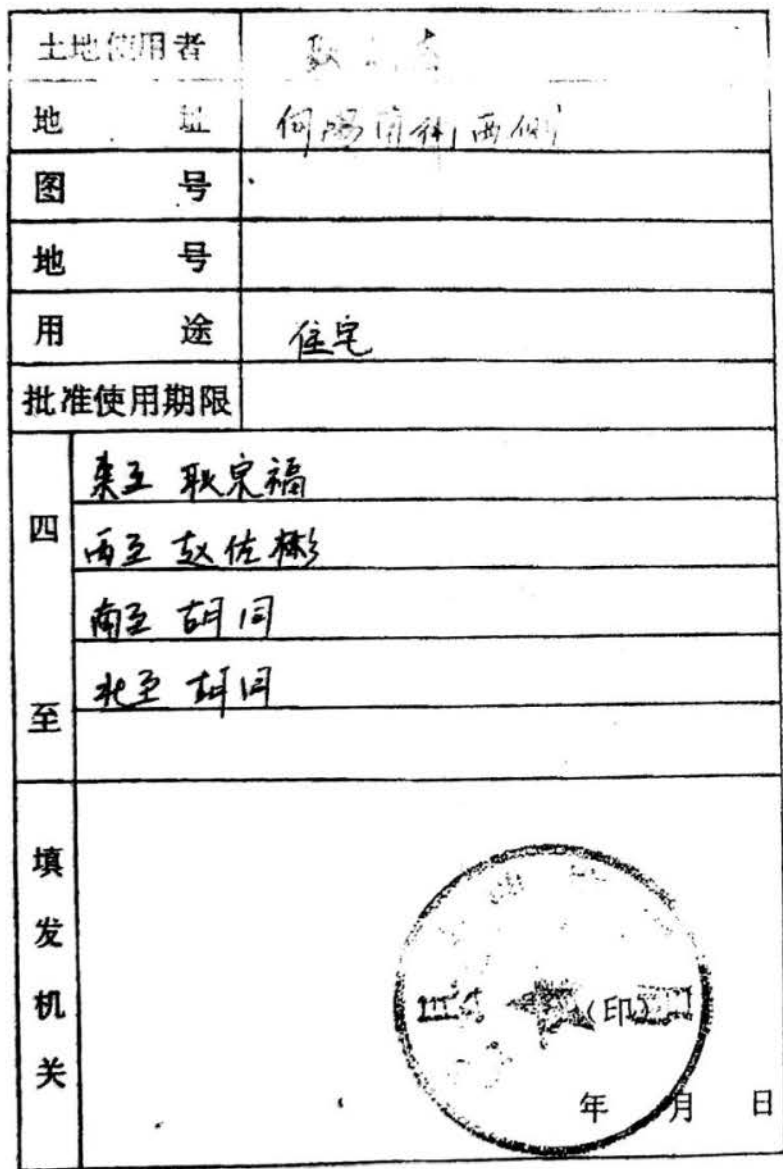 土地使用者 耿
地 址 向阳 街 西侧
图 号
地 号
用 途 住宅
批准使用期限
四至
东至 耿宗福
西至 赵佐彬
南至 胡同
北至 胡同
填发机关
(印)
年 月 日